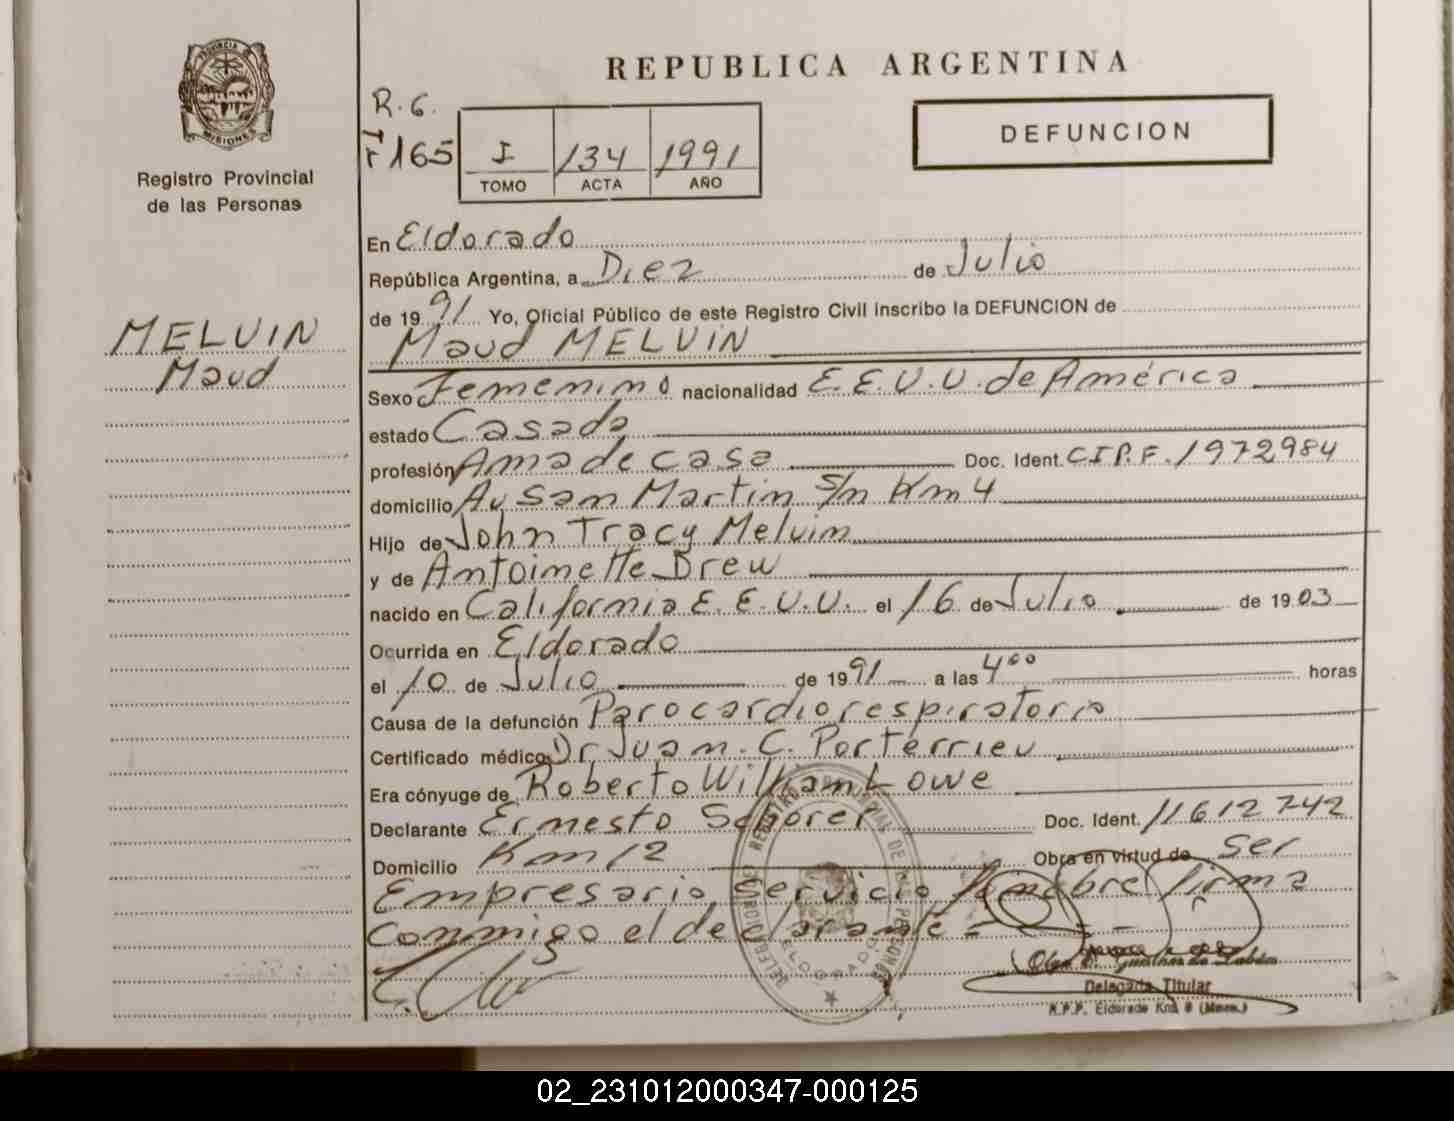 PROVINCIA DE MISIONES
Registro Provincial
de las Personas
MELVIN
Maud
REPUBLICA ARGENTINA
DEFUNCION
R.G.
Tr 165
I 134 1991
TOMO ACTA AÑO
En Eldorado
República Argentina, a Diez de Julio
de 19 91 Yo, Oficial Público de este Registro Civil inscribo la DEFUNCION de
Maud MELVIN
Sexo Femenino nacionalidad E.E.U.U. de América
estado Casada
profesión Ama de casa Doc. Ident. C.I.P.F. 1972984
domicilio Av San Martin S/n Km 4
Hijo de John Tracy Melvin
y de Antoinette Drew
nacido en California E.E.U.U. el 16 de Julio de 19 03
Ocurrida en Eldorado
el 10 de Julio de 19 91 a las 4 00 horas
Causa de la defunción Parocardiorespiratorio
Certificado médico Dr Juan. C. Porterrieu
Era cónyuge de Roberto William Lowe
Declarante Ernesto Schorer Doc. Ident. 11612742
Domicilio Km 12 Obra en virtud de ser
Empresario Servicio fúnebre firma
conmigo el declarante = - -
DELEGACION DEL REGISTRO PROVINCIAL DE LAS PERSONAS
ELDORADO
Delegada Titular
R.P.P. Eldorado Km 9 (Mnes.)
02_231012000347-000125